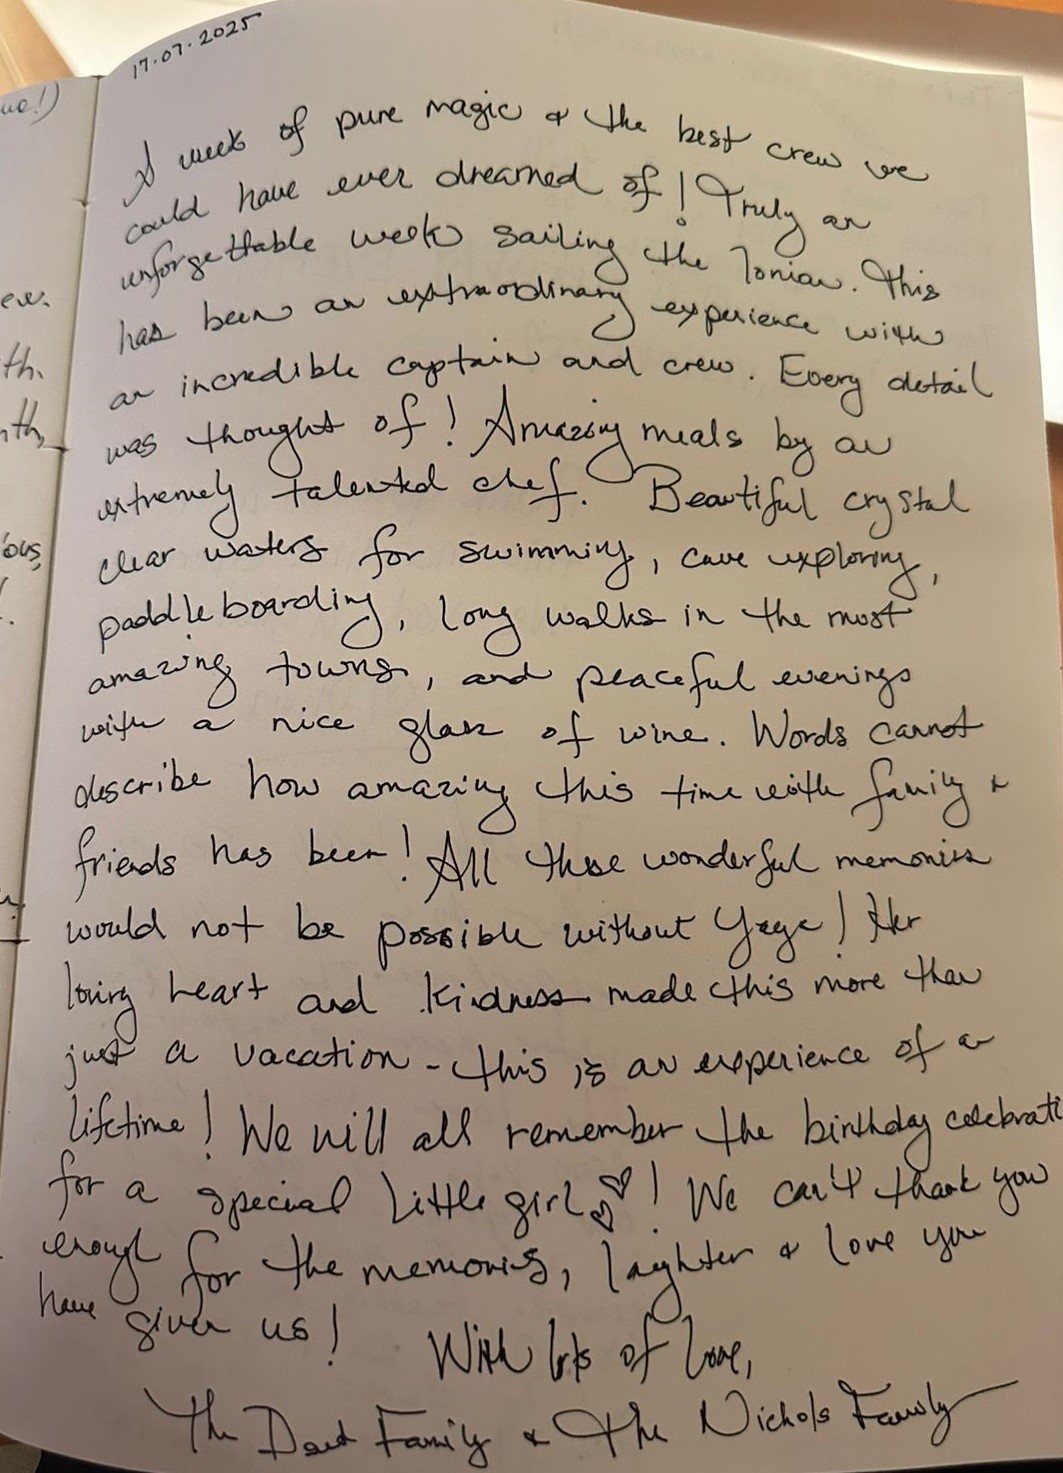 17.07.2025
A week of pure magic & the best crew we
could have ever dreamed of! Truly an
unforgettable week sailing the Ionian. This
has been an extraordinary experience with
an incredible captain and crew. Every detail
was thought of! Amazing meals by an
extremely talented chef. Beautiful crystal
clear waters for swimming, cave exploring,
paddleboarding, long walks in the most
amazing towns, and peaceful evenings
with a nice glass of wine. Words cannot
describe how amazing this time with family &
friends has been! All these wonderful memories
would not be possible without! Her
loving heart and kindness made this more than
just a vacation - this is an experience of a
lifetime! We will all remember the birthday celebrati
for a special little girl ♡♡! We can't thank you
enough for the memories, laughter & love you
have given us!
With lots of love,
The Family & The Nichols Family
ue!)
ew.
th.
nth,
ious,